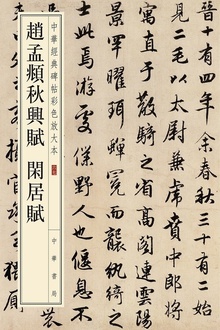 中華經典碑帖彩色放大本
趙孟頫秋興賦 閑居賦
中華書局
晉十有四年余春秋三十有二始
見二毛以太尉掾兼虎賁中郎將
寓直于散騎之省高閣連雲陽
景罕曜珥蟬冕而襲紈綺之
士此焉游處僕野人也偃息不